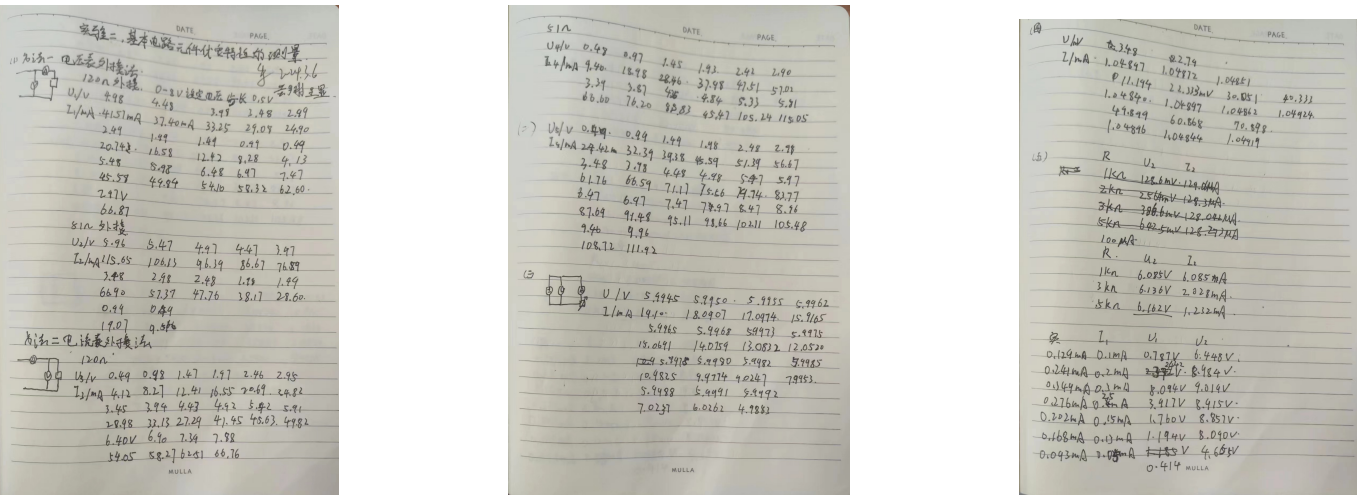 DATE PAGE
实验二、基本电路元件伏安特性的测量
(1) 方法一 电压表外接法
120Ω 外接 0-8V 设定电压 步长 0.5V
U₁/V 4.98 4.48 3.98 3.48 2.99
I₁/mA 41.57mA 37.40mA 33.25 29.08 24.90
2.49 1.99 1.49 0.99 0.49
16.58 12.42 8.28 4.13
5.48 5.98 6.48 6.97 7.47
45.58 49.84 54.10 58.32 62.60
7.97V
66.87
51Ω 外接
U₂/V 5.96 5.47 4.97 4.47 3.97
I₂/mA 115.65 106.13 96.39 86.67 76.89
3.48 2.98 2.48 1.98 1.49
66.90 57.37 47.76 38.17 28.60
0.99 0.49
19.07
方法二 电流表外接法
120Ω
U₃/V 0.49 0.98 1.47 1.97 2.46 2.95
I₃/mA 4.12 8.27 12.41 16.55 20.69 24.82
3.45 3.94 4.43 4.92 5.42 5.91
28.98 33.13 37.29 41.45 45.63 49.82
6.40V 6.90 7.39 7.88
54.05 58.27 62.51 66.76
MULLA
DATE PAGE
51Ω
U₄/V 0.48 0.97 1.45 1.93 2.42 2.90
I₄/mA 9.40 18.98 28.46 37.98 47.51 57.02
3.39 3.87 4.84 5.33 5.81
66.60 76.20 85.83 95.47 105.24 115.05
(二) U₅/V 0.49 0.99 1.49 1.98 2.48 2.98
I₅/mA 32.39 39.38 45.59 51.39 56.67
3.48 3.98 4.48 4.98 5.47 5.97
61.76 66.59 71.17 75.56 79.74 83.77
6.47 6.97 7.47 7.97 8.47 8.96
87.69 91.48 95.11 98.66 102.11 105.48
9.46 9.96
108.72 111.92
(3)
U/V 5.9945 5.9950 5.9955 5.9962
I/mA 19.10 18.0907 17.0974 15.9165
5.9965 5.9968 5.9973 5.9975
15.0691 14.0759 13.0832 12.0520
5.9978 5.9980 5.9982 5.9985
10.9825 9.9774 9.0247 7.9953
5.9988 5.9991 5.9992
7.0237 6.0262 4.9883
MULLA
DATE PAGE
(四)
U/mV
I/mA 1.04897 1.04872 1.04851
11.194 22.313mV 30.851 40.333
1.04840 1.04897 1.04862 1.04924
49.899 60.868 70.898
1.04896 1.04844 1.04919
(五)
R U₂ I₂
1kΩ
2kΩ
3kΩ
5kΩ
100μA
R U₂ I₂
1kΩ 6.085V 6.085mA
3kΩ 6.136V 2.028mA
5kΩ 6.162V 1.232mA
实 I₁ U₁ U₂
0.129mA 0.1mA 0.787V 6.448V
0.241mA 0.2mA 8.984V
0.349mA 0.3mA 8.094V 9.014V
0.276mA 3.917V 8.915V
0.202mA 0.15mA 1.760V 8.857V
0.168mA 0.13mA 1.194V 8.090V
0.093mA
0.414 MULLA